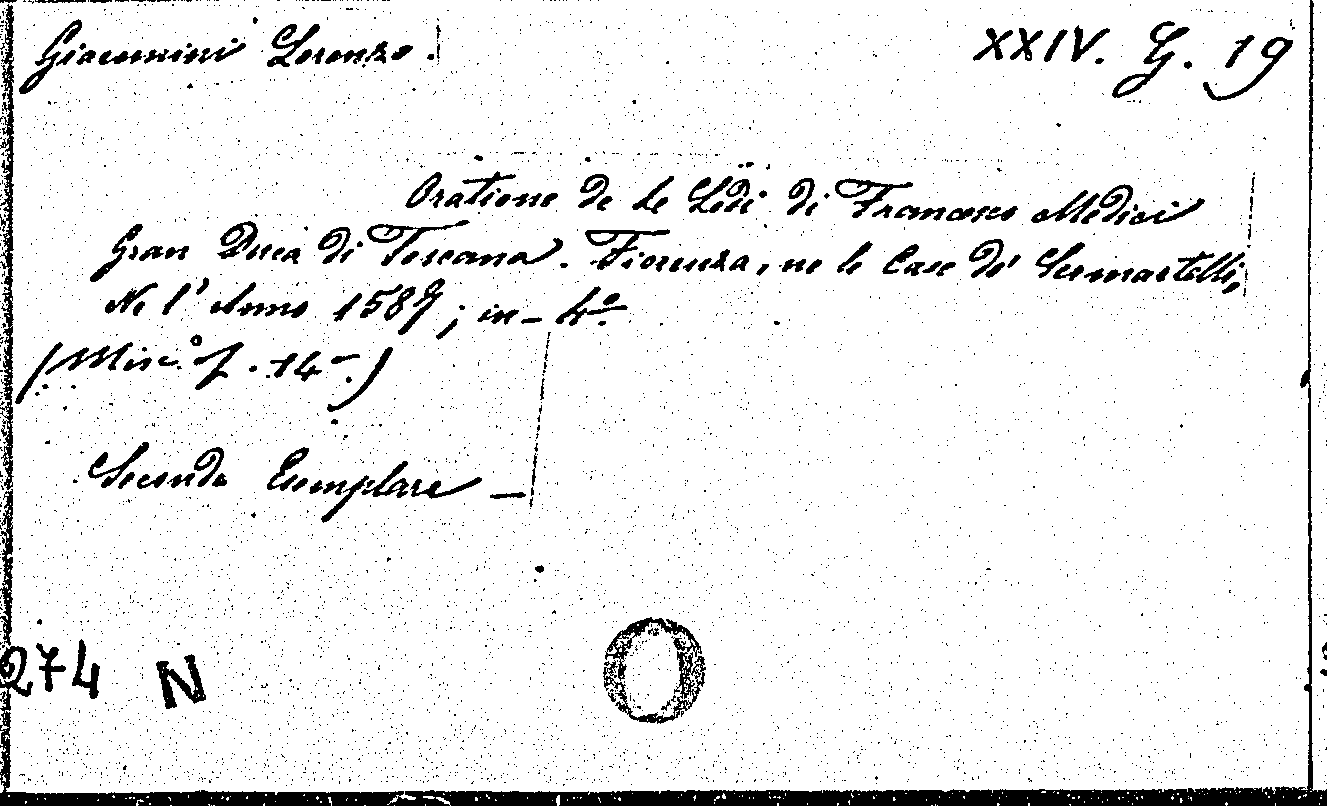 Giacomini Lorenzo.
XXIV. G. 19
Oratione de le Lodi di Francesco Medici
Gran Duca di Toscana. Fiorenza, ne le Case de' Sermartelli,
Ne l' Anno 1587; in-4º.
(Misc.ª f. 14-.)
Secondo Esemplare -
274 N